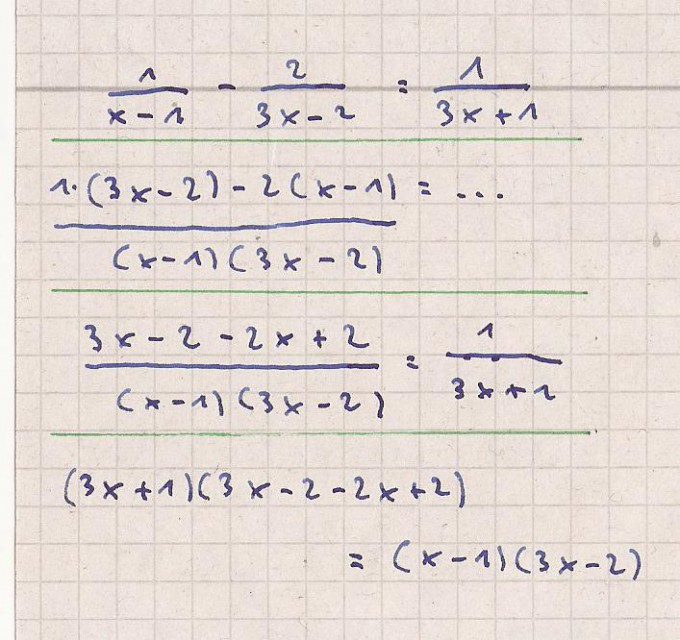 1/(x-1) - 2/(3x-2) = 1/(3x+1)
(1·(3x-2)-2(x-1))/((x-1)(3x-2)) = ...
(3x-2-2x+2)/((x-1)(3x-2)) = 1/(3x+1)
(3x+1)(3x-2-2x+2)
= (x-1)(3x-2)